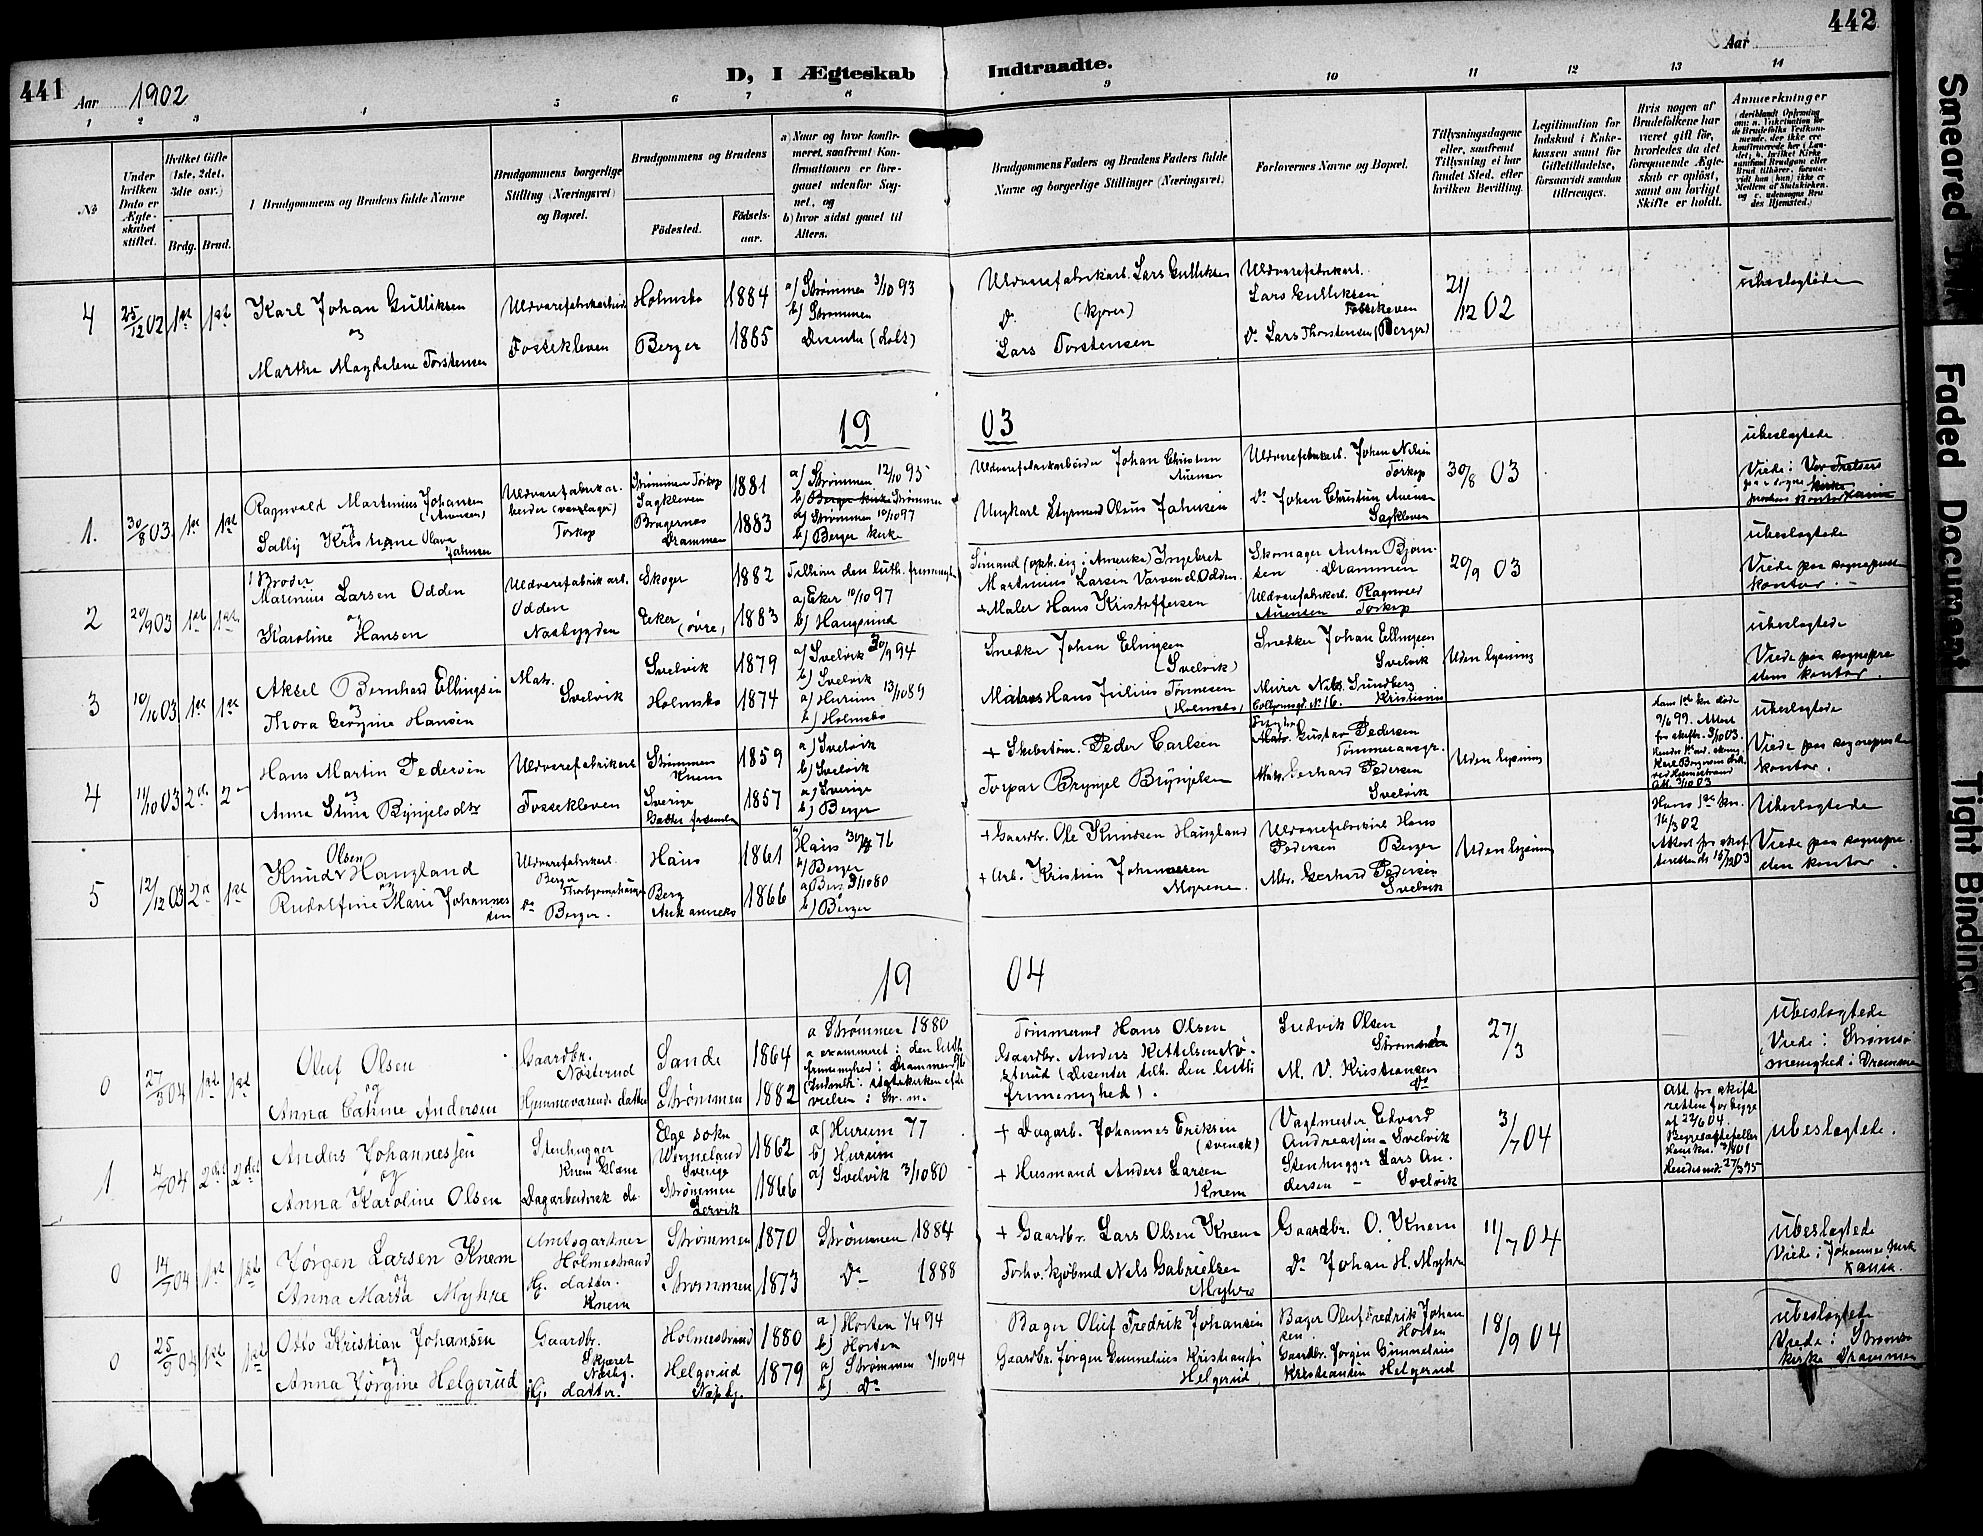 441
Aar 1902
D, I Ægteskab Indtraadte.
Aar
442
1 2 3 4 5 6 7 8 9 10 11 12 13 14
No
Under hvilken Dato er Ægteskabet stiftet.
Hvilket Gifte (1ste, 2det, 3dte osv.)
Brdg. Brud.
Brudgommens og Brudens fulde Navne
Brudgommens borgerlige Stilling (Næringsvei) og Bopæl.
Brudgommens og Brudens
Fødested.
Fødselsaar.
a) Naar og hvor konfirmeret, saafremt Konfirmationen er foregaaet udenfor Sognet, og
b) hvor sidst gaaet til Alters.
Brudgommens Faders og Brudens Faders fulde Navne og borgerlige Stillinger (Næringsvei)
Forlovernes Navne og Bopæl.
Tillysningsdagene eller, saafremt Tillysning ei har fundet Sted, efter hvilken Bevilling.
Legitimation for Indskud i Enkekassen samt for Giftetilladelse, forsaavidt saadan tiltrænges.
Hvis nogen af Brudefolkene har været gift før, hvorledes da det foregaaende Ægteskab er opløst, samt om lovligt Skifte er holdt.
Anmærkninger
4
25/12 02
1ste 1ste
Karl Johan Gulliksen
og
Martha Magdalene Torstensen
Uldvarefabrikarbeid
Fossekleven
Holmsbo
Berger
1884
1885
a) Strømmen 3/10 93
b) Strømmen
Dissenter
Uldvarefabrikarb. Lars Gulliksen
Do (Kjører)
Lars Torstensen
Uldvarefabrikarb.
Lars Gulliksen
Fossekleven
Do Lars Thorstensen (Berger)
21/12 02
ubeslægtede
19 03
1.
30/8 03
1ste 1ste
Ragnvald Martinius Johansen
(Auensen)
og
Sally Kristiane Olava
Jahnsen
Uldvarefabrikar-
beider
Torkop
Strømmen Torkop
Sagkleven
Bragernes
Drammen
1881
1883
a) Strømmen 12/10 95
b) Berger kirke Strømmen
a) Strømmen 10/10 97
b) Berger kirke
Uldvarefabrikarbeider Johan Christian
Auensen
Ungkarl Styrmand Olaus Jahnsen
Uldvarefabrikarb. Johan Nilsen
Torkop
Do Johan Christian Auensen
Sagkleven
30/8 03
ubeslægtede
Viede i Vor Frelsers
2
20/9 03
1ste 1ste
Marinius Larsen Odden
og
Karoline Hansen
Uldvarefabrikarb.
Odden
Næsbygden
Skoger
Eker (øvre)
1882
1883
Tilhører den luth. frimenighed
a) Eker 10/10 97
b) Haugsund
Sømand (oph. sig i Amerika) Ingebret
Martinius Larsen Varven el. Odden.
+ Maler Hans Kristoffersen
Skomager Anton Bjørn-
sen Drammen
Uldvarefabrikarb. Ragnvald
Auensen Torkop
20/9 03
ubeslægtede
Viede paa sogneprestens
kontor.
3
10/10 03
1ste 1ste
Aksel Bernhard Ellingsen
og
Thora Georgine Hansen
Matr.
Svelvik
Svelvik
Holmsbo
1879
1874
a) Svelvik 30/9 94
b) Svelvik
a) Hurum 13/10 89
b) Holmsbo
Snedker Johan Elingsen
(Svelvik)
Matros Hans Julius Tønnesen
(Holmsbo)
Snedker Johan Ellingsen
Svelvik
Murer Nils Sundberg
Kristiania
Uden lysning
ubeslægtede
Viede paa sognepre
stens kontor.
4
11/10 03
2den 2den
Hans Martin Pedersen
og
Anna Stina Bynjelsdtr
Uldvarefabrikarb
Fossekleven
Strømmen
Knem
Sverige
1859
1857
a) Svelvik
b) Svelvik
a) Sverige
b) Berger
+ Skibstøm. Peder Carlsen
Torpar Brynjel Brynjelsen
Gustav Pedersen
Tømmeransgr.
Matr. Gerhard Pedersen
Svelvik
Uden lysning
ubeslægtede
Viede paa sogneprestens
kontor.
5
12/12 03
2den 1ste
Olsen
Knud Haugland
og
Rudolfine Marie Johannes
sen
Uldvarefabrikarb.
Berger
Do Berger.
Haus
Berg
1861
1866
a) Haus 76
b) Berger
a) Berg 3/10 80
b) Berger
+ Gaardbr. Ole Knudsen Haugland
+ Arb. Kristian Johannesen
Myrene.
Uldvarefabrikarb Hans
Pedersen Berger
Mtr. Gerhard Pedersen
Svelvik
Uden lysning
Hans 1ste kn.
16/3 02
Ubeslægtede
Viede paa sognepre-
stens kontor.
19 04
0
27/3 04
1ste 1ste
Oluf Olsen
og
Anna Cathine Andersen
Gaardbr.
Nøsterud
Hjemmeværende datter
Sande
Strømmen
1864
1882
a Strømmen 1880
Tømmermd Hans Olsen
Gaardbr. Anders Kittelsen Nø-
sterud (Dissenter tilh. den luth.
frimenighed).
Ludvik Olsen
Strømmen
M. V. Kristiansen
Do
27/3
ubeslægtede
Viede i Strømsø
menighed i Drammen
1
4/7 04
2det 2det
Anders Johannessen
og
Anna Karoline Olsen
Stenhugger
Dagarbeiderske do
Elge sokn
Wermeland
Sverige
Strømmen
1862
1866
a) Hurum 77
b) Hurum
a) Svelvik 3/10 80
+ Dagarb. Johannes Eriksen
(svensk)
+ Husmand Anders Larsen
Knem
Vagtmester Edvard
Andreassen - Svelvik
Stenhugger Lars An-
dersen - Svelvik
3/7 04
ubeslægtede.
0
14/7 04
1ste 1ste
Jørgen Larsen Knem
og
Anna Maria Myhre
Amtsgartner
Holmestrand
Hj. datter.
Knem
Strømmen
Strømmen
1870
1873
Strømmen 1884
Do 1888
+ Gaardbr. Lars Olsen Knem
Forhv. kjøbmd Nils Gabrielsen
Myhre
Gaardbr. O. Knem
Do Johan H. Myhre
11/7 04
ubeslægtede
Viede i Johannes kirke
Xania.
0
25/9 04
1ste 1ste
Otto Kristian Johansen
og
Anna Jørgine Helgerud
Gaardbr.
Skjæret
Næsbg.
Hj. datter.
Holmestrand
Helgerud
Næsbg.
1880
1879
a) Horten 1/4 94
b) Horten
a) Strømmen 7/10 94
b) Do
Bager Oluf Fredrik Johansen
Gaardbr. Jørgen Gunnelius Kristiansen
Helgerud
Bager Oluf Fredrik Johan
sen Horten
Gaardbr. Jørgen Gunnelius
Kristiansen Helgerud
18/9 04
ubeslægtede
Viede i Strømsø
kirke Drammen
Smeared Ink
Faded Document
Tight Binding